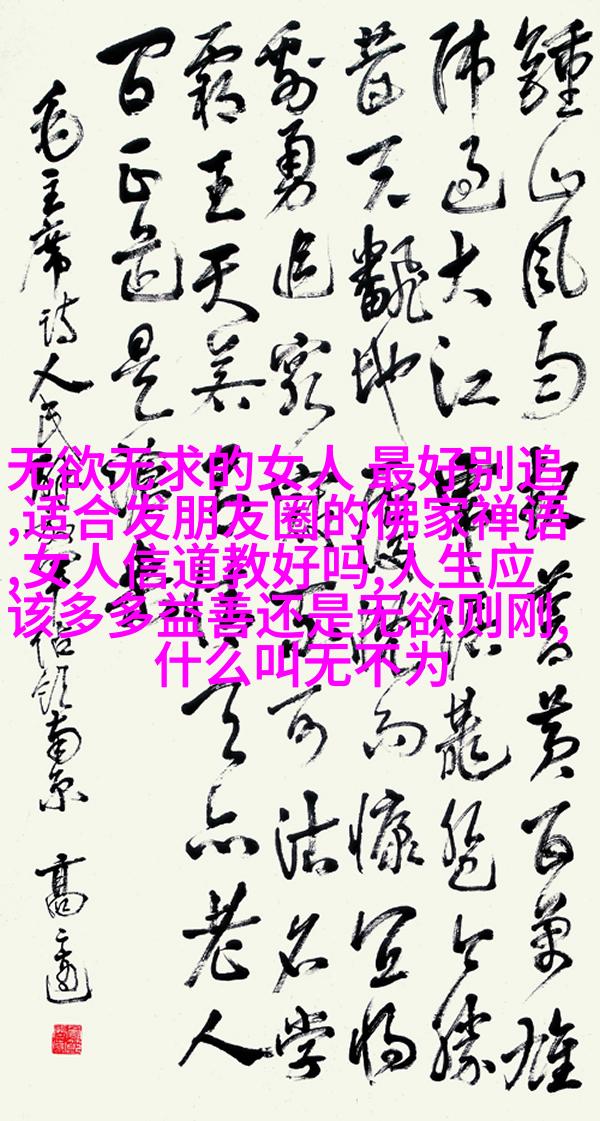 鍾山風雨起蒼黃百萬雄
师過大江虎踞龍盤今勝
昔天翻地覆慨而慷宜將
剩勇追窮寇不可沽名學
霸王天若有情天亦老人
间正道是滄桑
毛主席诗人民解放军占领南京
无欲无求的女人 最好别追
,适合发朋友圈的佛家禅语
,女人信道教好吗,人生应
该多多益善还是无欲则刚,
什么叫无不为